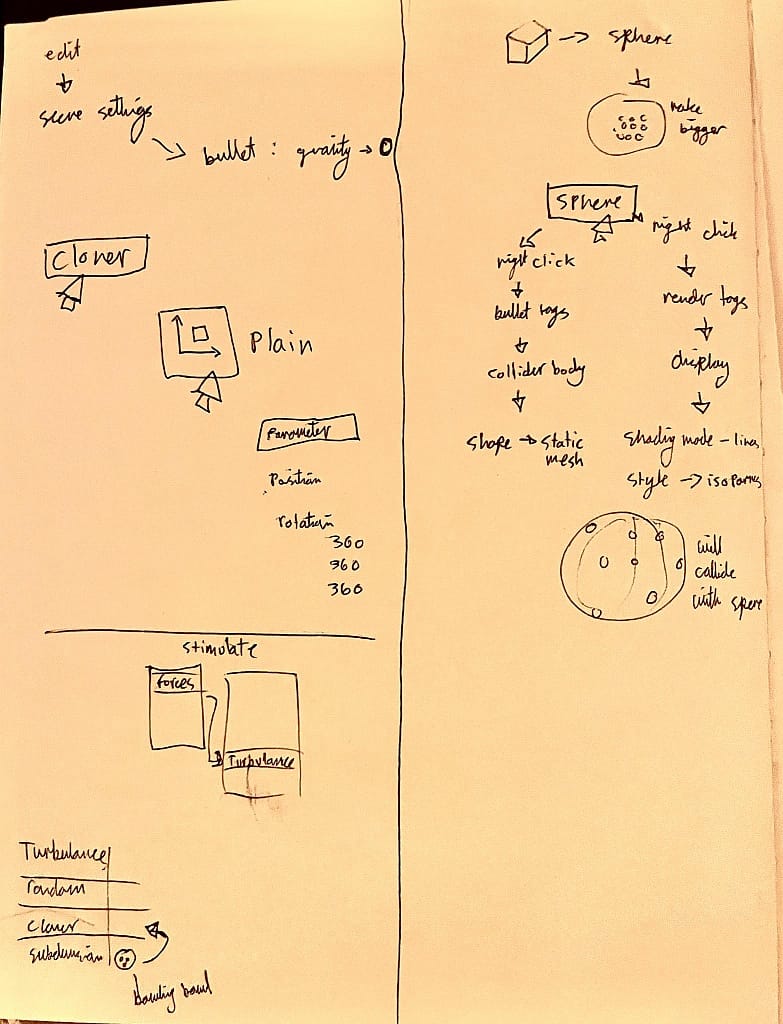 edit
scene settings
bullet : gravity → 0
Cloner
Plain
Parameter
Position
rotation
360
360
360
stimulate
forces
Turbulance
Turbulance
random
cloner
subdivision
bowling bowl
→ sphere
make
bigger
sphere
right click
bullet tags
collider body
shape → static
mesh
right click
render tags
display
shading mode - lines
style → isoparms
will
collide
with spere